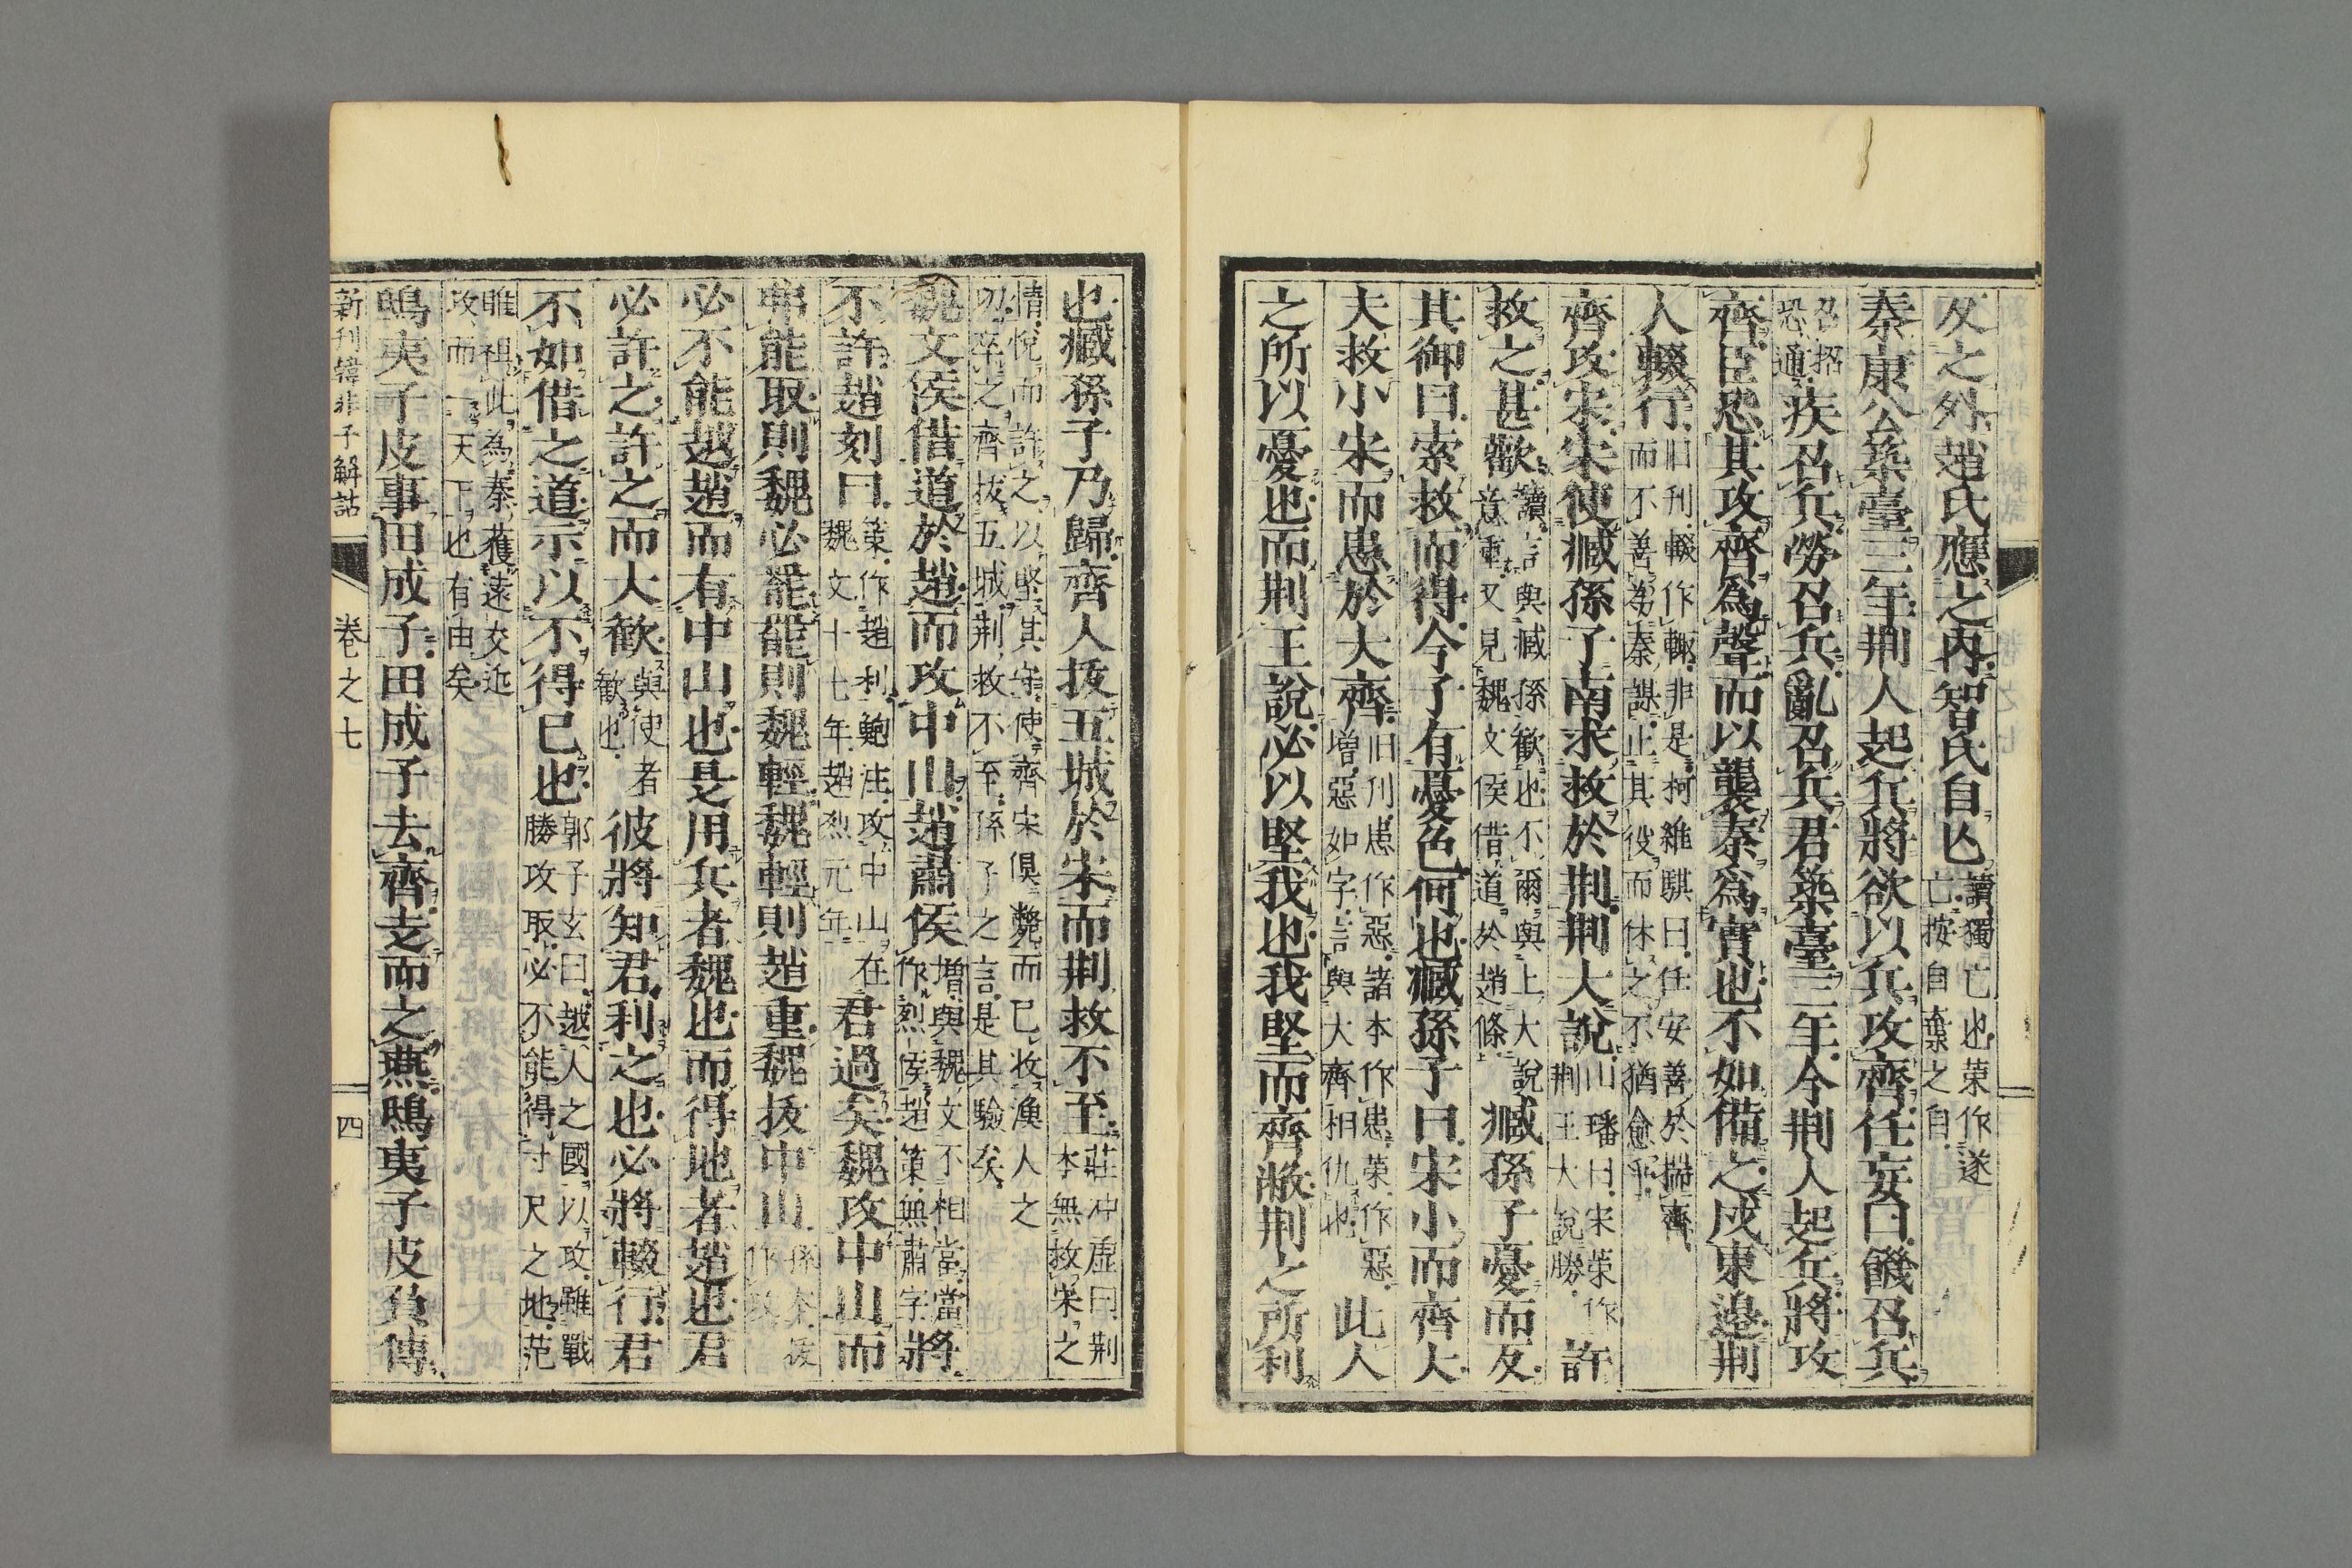 反之外趙氏應之内智氏自亾讀獨亡也荣作遂亡按自棄之自
秦康公築臺三年荆人起兵將欲以兵攻齊任妄曰饑召兵
召招恐通疾召兵勞召兵亂召兵君築臺三年今荆人起兵將攻
齊臣恐其攻齊爲聲而以襲秦爲實也不如備之戍東邉荆
人輟行旧刊輟作輙非是柯維騏曰任安善於揣齊而不善為秦謀止其役而休之不猶愈乎
齊攻宋宋使臧孫子南求救於荆荆大說山璠曰宋荣作荆王大說勝許
救之甚歡讀言與臧孫歓也不爾與上大說意重又見魏文侯借道於趙條臧孫子憂而反
其御曰索救而得今子有憂色何也臧孫子曰宋小而齊大
夫救小宋而患於大齊旧刊患作惡諸本作患荣作惡増惡如字言與大齊相仇也此人
之所以憂也而荆王說必以堅我也我堅而齊敝荆之所利
也臧孫子乃歸齊人拔五城於宋而荆救不至莊冲虚曰荆本無救宋之
情悅而許之以堅其守使齊宋俱斃而已收漁人之功卒之齊抜五城荆救不至孫子之言是其驗矣
魏文侯借道於趙而攻中山趙肅侯増與魏文不相當當作烈侯趙策無肅字將
不許趙刻曰策作趙利鮑注攻中山在魏文十七年趙烈元年君過矣魏攻中山而
弗能取則魏必罷罷則魏輕魏輕則趙重魏抜中山孫本抜作攻
必不能越趙而有中山也是用兵者魏也而得地者趙也君
必許之許之而大歓與使者歓也彼將知君利之也必將輟行君
不如借之道示以不得已也郭子玄曰越人之國以攻雖戰勝攻取必不能得寸尺之地范
睢祖此為秦蒦遠交近攻而一天下也有由矣
鴟夷子皮事田成子田成子去齊走而之燕鴟夷子皮負傳
新刊韓非子解詁 卷之七 四